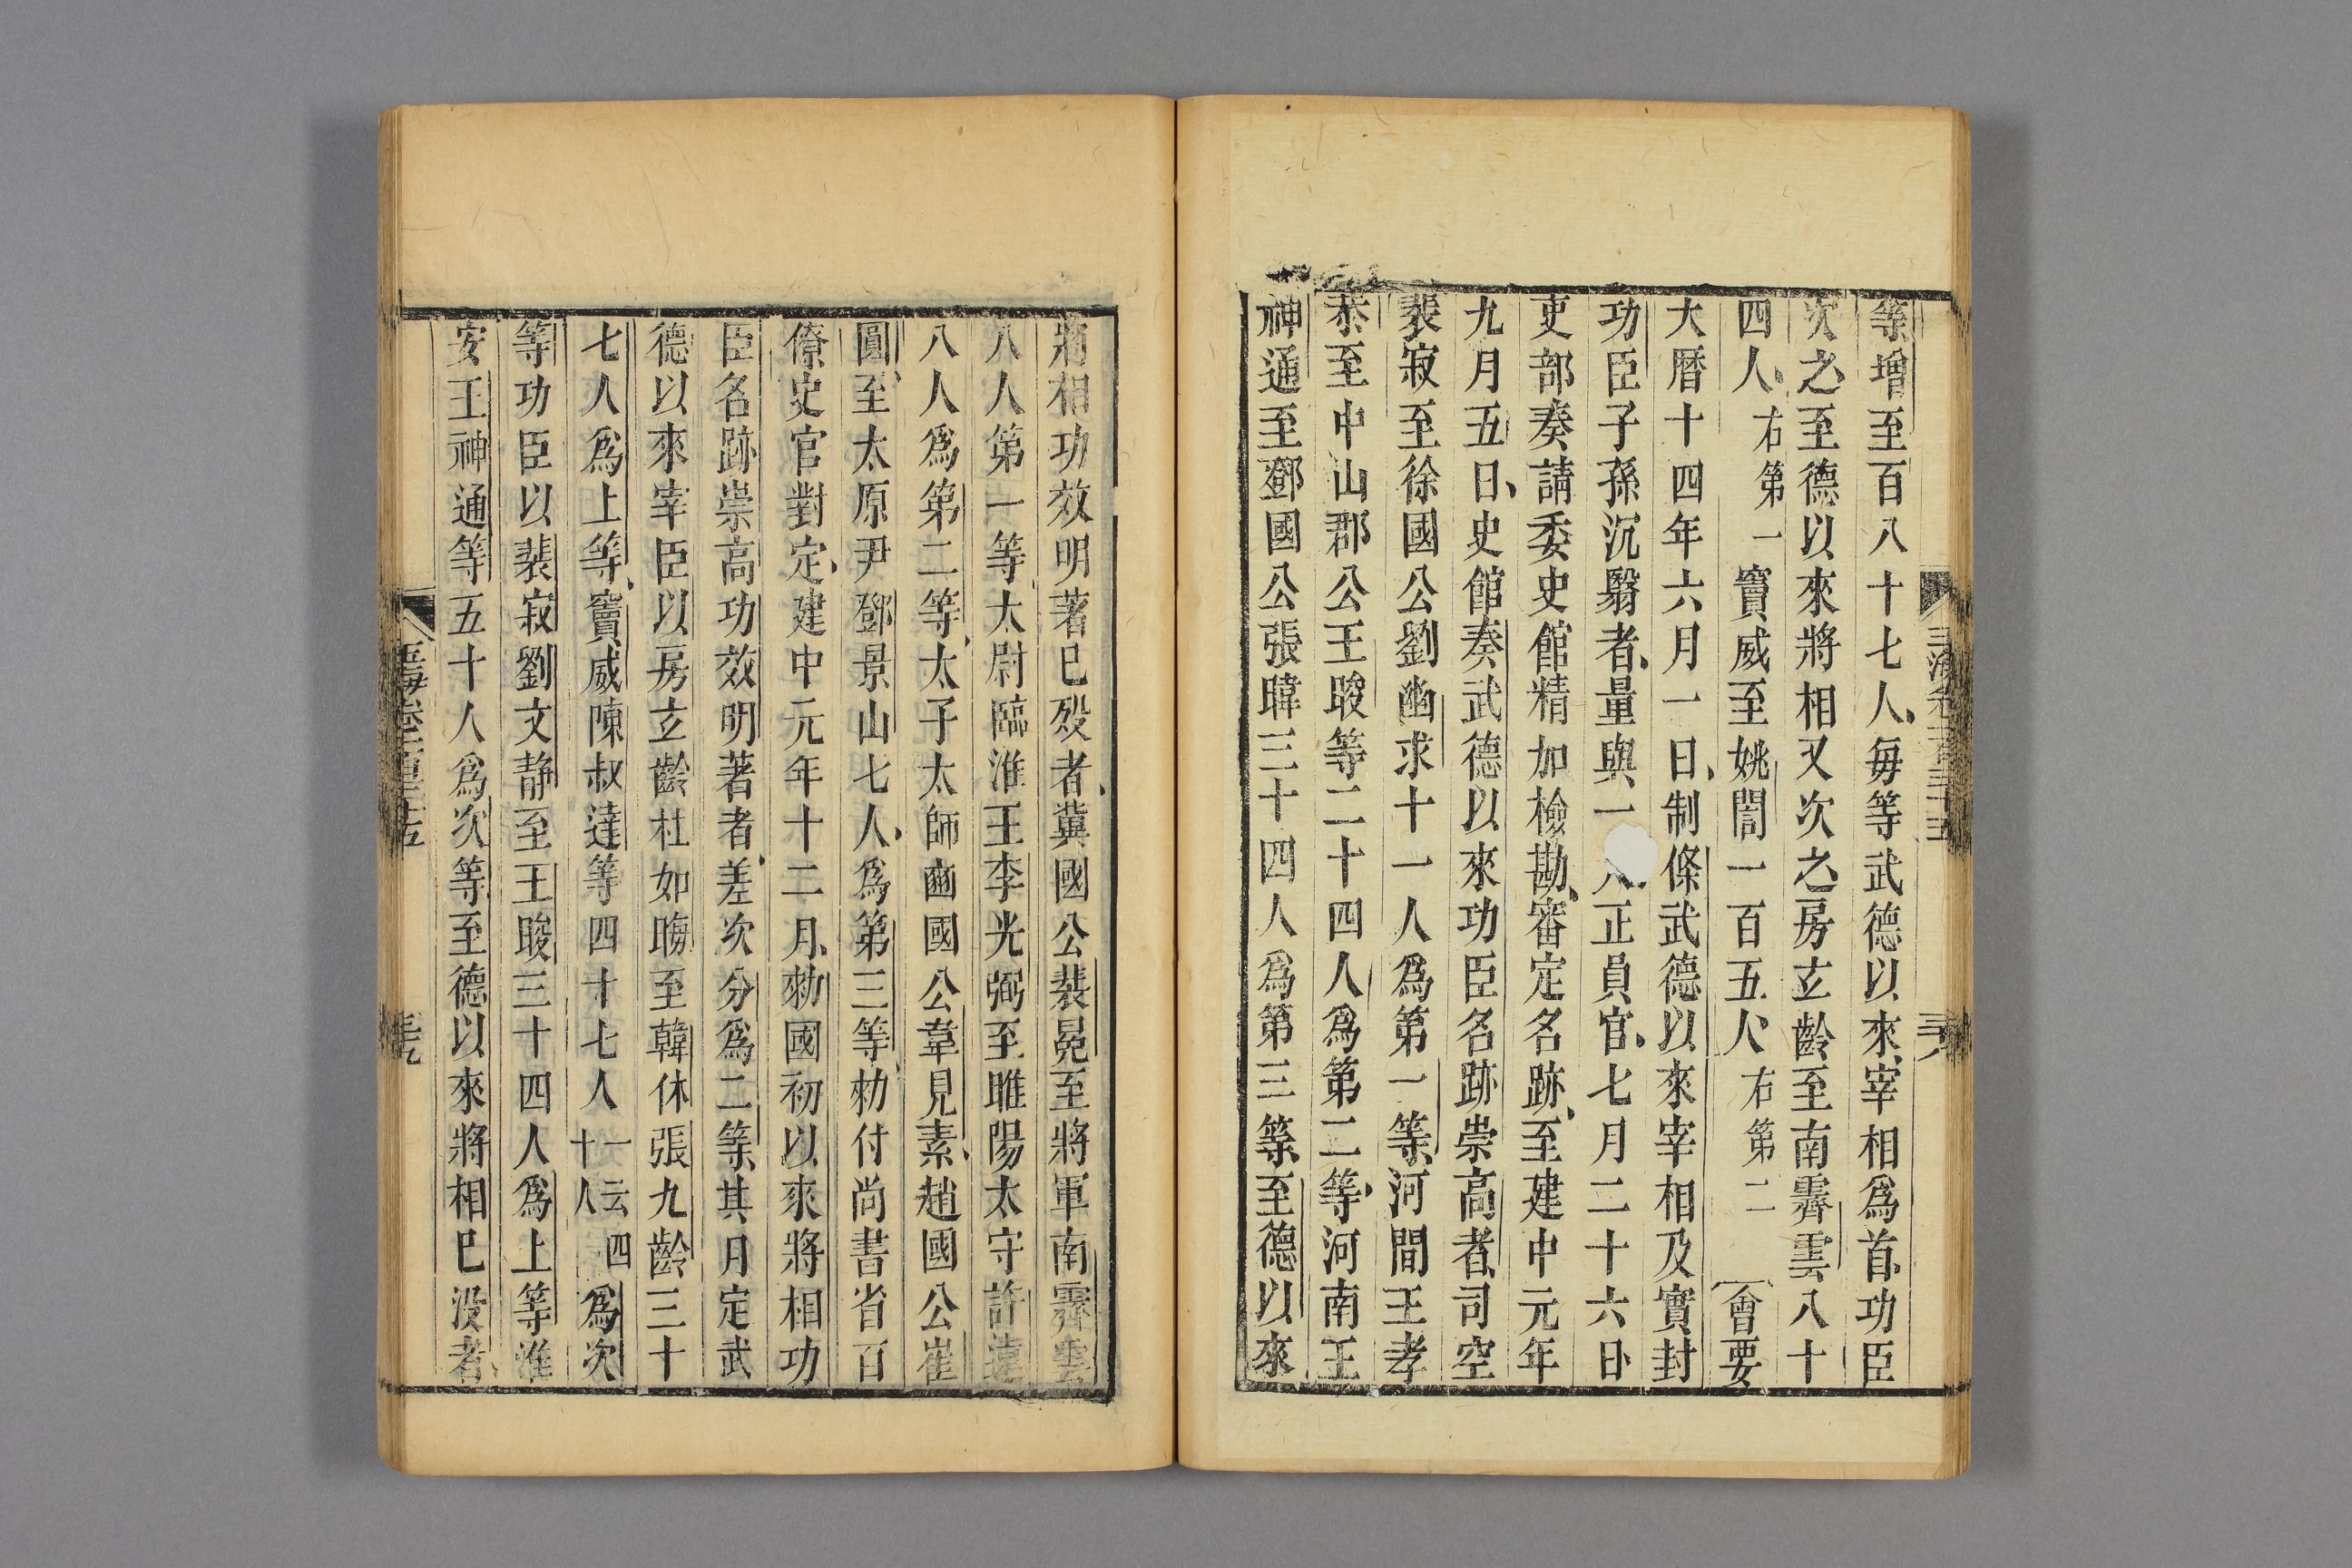 等增至百八十七人每等武德以來宰相爲首功臣
次之至德以來將相又次之房玄齡至南霽雲八十
四人右第一竇威至姚誾一百五人右第二會要
大曆十四年六月一日制條武德以來宰相及實封
功臣子孫沉翳者量與一人正員官七月二十六日
吏部奏請委史館精加檢勘審定名跡至建中元年
九月五日史館奏武德以來功臣名跡崇高者司空
裴寂至徐國公劉幽求十一人爲第一等河間王孝
恭至中山郡公王晙等二十四人爲第二等河南王
神通至鄧國公張暐三十四人爲第三等至德以來
將相功效明著已歿者冀國公裴冕至將軍南霽雲
八人第一等太尉臨淮王李光弼至雎陽太守許遠
八人爲第二等太子太師豳國公韋見素趙國公崔
圓至太原尹鄧景山七人爲第三等勑付尚書省百
僚史官對定建中元年十二月勑國初以來將相功
臣名跡崇高功效明著者差次分爲二等其月定武
德以來宰臣以房玄齡杜如晦至韓休張九齡三十
七人爲上等竇威陳叔達等四十七人一云四十人爲次
等功臣以裴寂劉文靜至王晙三十四人爲上等淮
安王神通等五十人爲次等至德以來將相已沒者